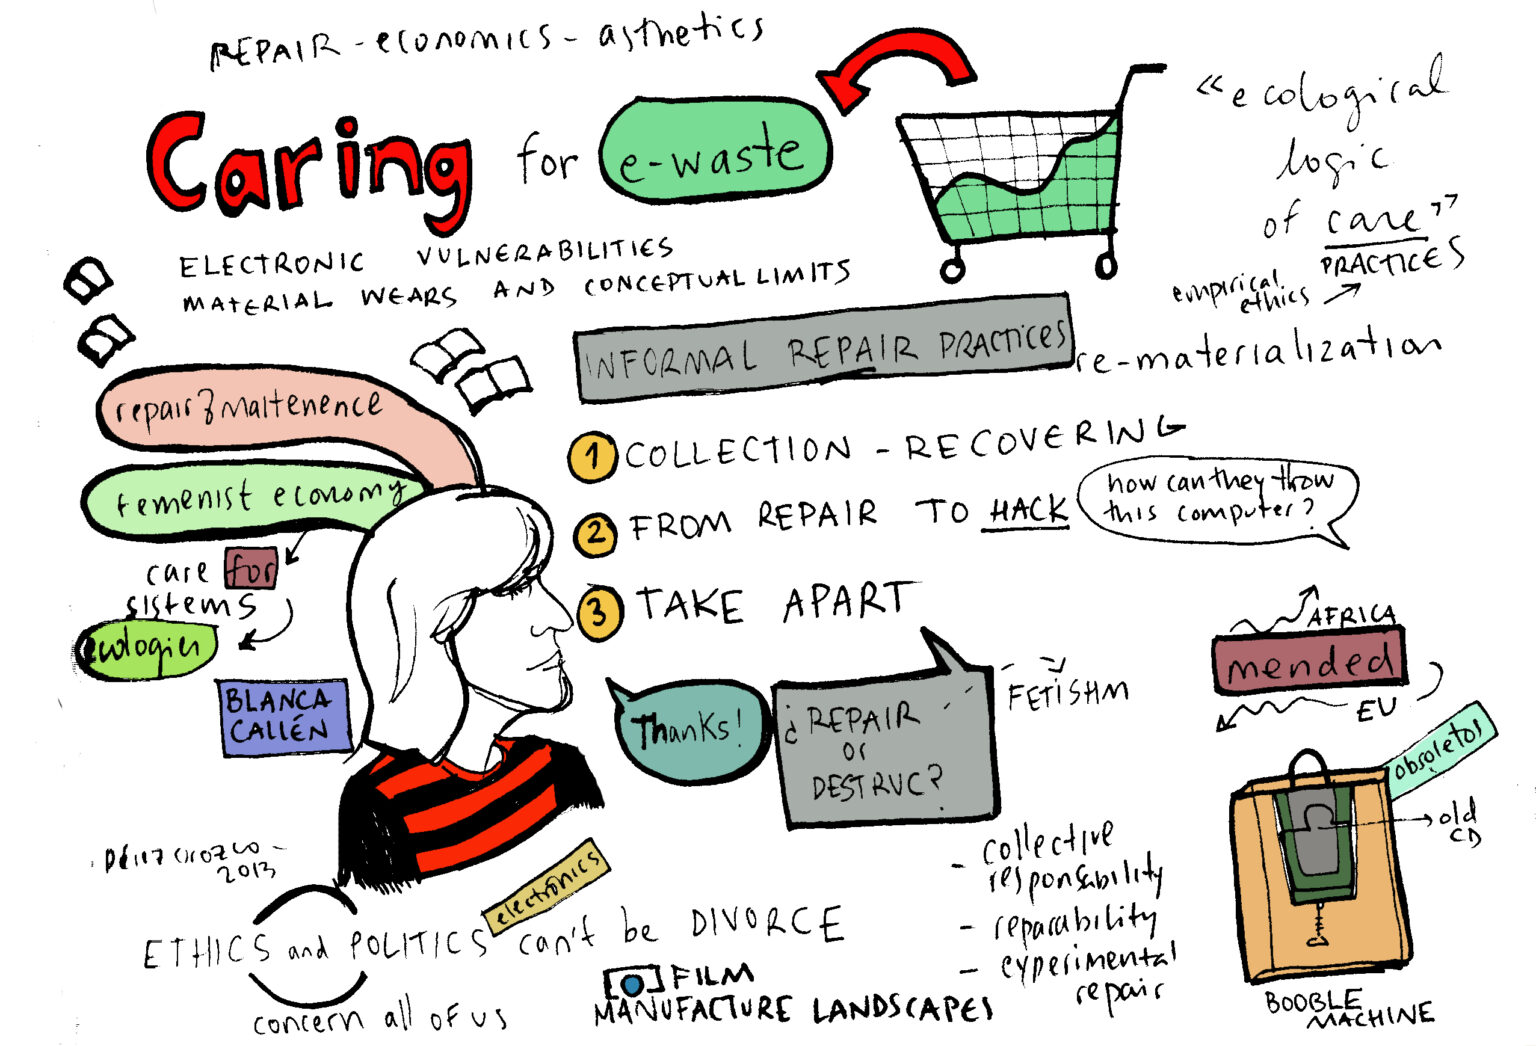 REPAIR - economics - asthetics
Caring for e-waste
ELECTRONIC VULNERABILITIES
MATERIAL WEARS AND CONCEPTUAL LIMITS
"ecological
logic
of care"
PRACTICES
empirical
ethics
INFORMAL REPAIR PRACTICES
re-materialization
repair & maitenence
femenist economy
care for
sistems
ecologies
BLANCA
CALLÉN
1 COLLECTION - RECOVERING
2 FROM REPAIR TO HACK
how can they throw
this computer?
3 TAKE APART
Thanks!
¿REPAIR
or
DESTRUC?
FETISHM
AFRICA
mended
EU
obsoletos
old
CD
BOOBLE
MACHINE
- collective
responsability
- reparability
- experimental
repair
2013
electronics
ETHICS and POLITICS can't be DIVORCE
concern all of us
FILM
MANUFACTURE LANDSCAPES